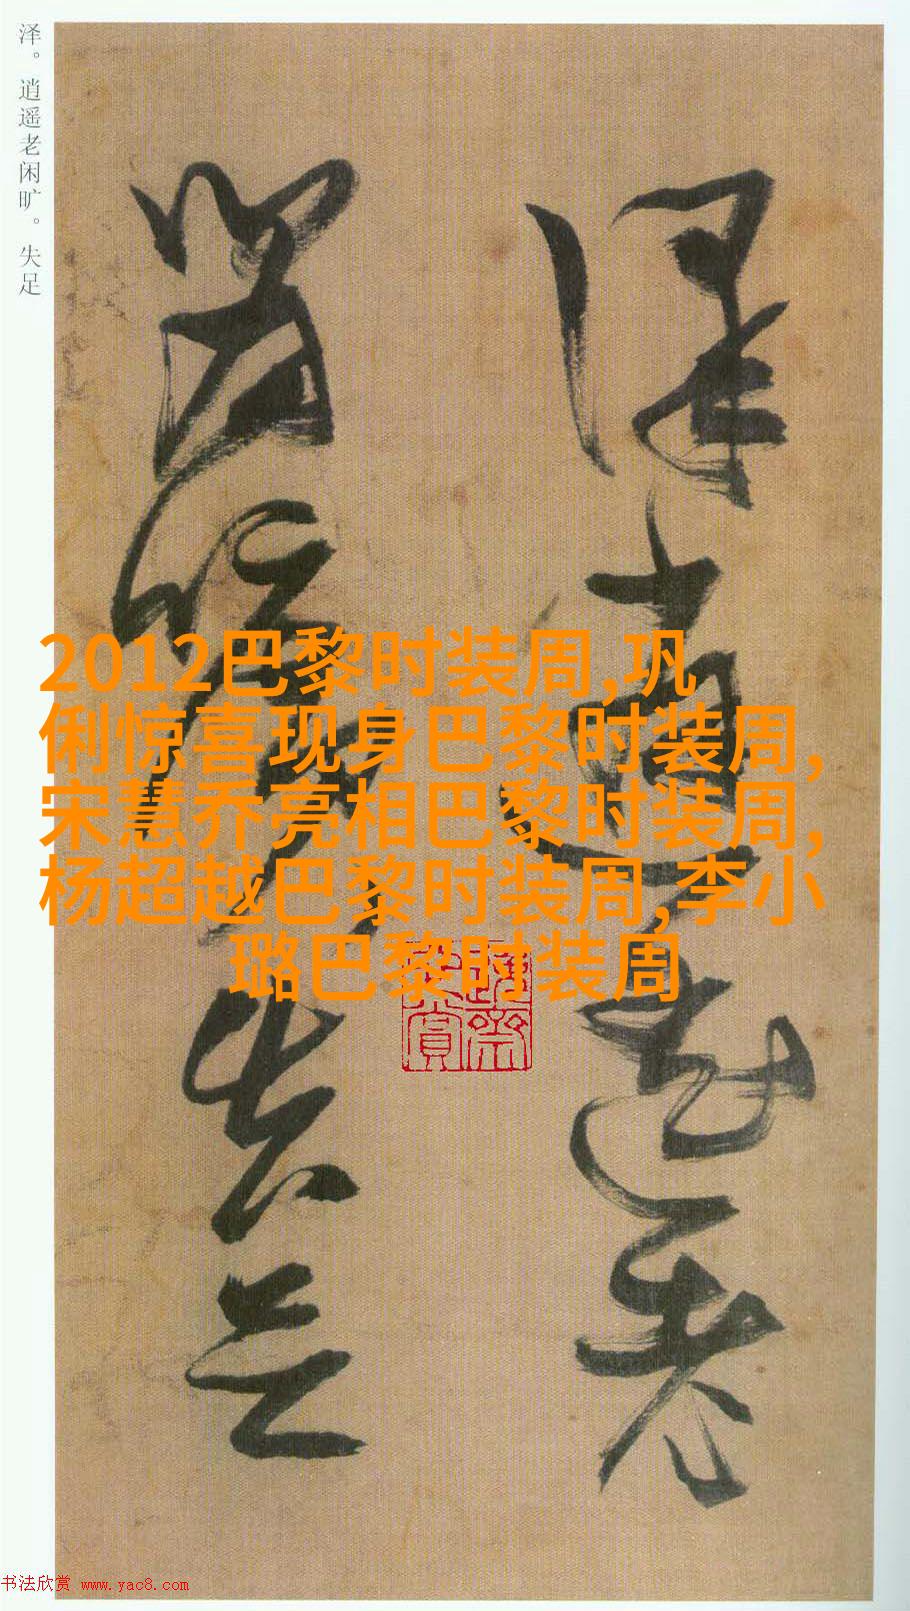 泽。逍遥老闲旷。失足
泽逍遥老
闲旷失足
2012巴黎时装周,巩
俐惊喜现身巴黎时装周,
宋慧乔亮相巴黎时装周,
杨超越巴黎时装周,李小
璐巴黎时装周
书法欣赏 www.yac8.com